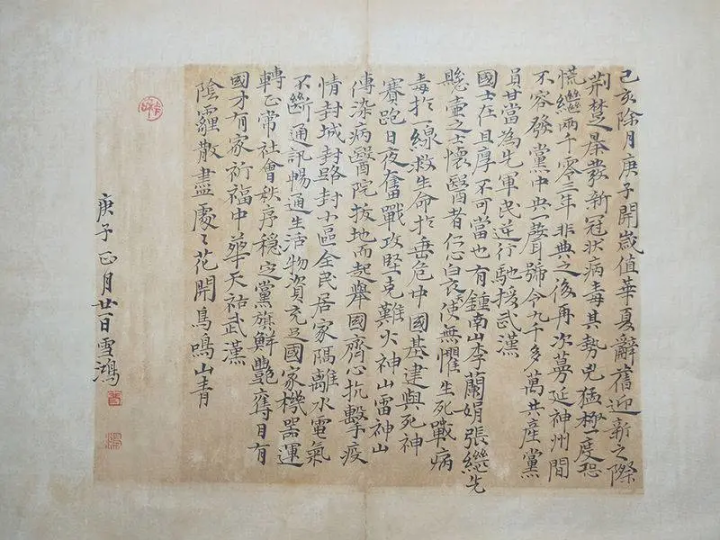 己亥除月庚子開歲值華夏辭舊迎新之際
荆楚暴發新冠狀病毒其勢兇猛極一度恐
慌繼兩千零三年非典之後再次蔓延神州間
不容發黨中央一聲號令九千多萬共產黨
員甘當為先軍民逆行馳援武漢
國士在且厚不可當也有鍾南山李蘭娟張繼先
懸壺之士懷醫者仁心白衣天使無懼生死戰病
毒於一線救生命於垂危中國基建與死神
賽跑日夜奮戰攻堅克難火神山雷神山
傳染病醫院拔地而起舉國齊心抗擊疫
情封城封路封小區全民居家隔離水電氣
不斷通訊暢通生活物資充足國家機器運
轉正常社會秩序穩定黨旗鮮艷奪目有
國才有家祈福中華天祐武漢
陰霾散盡處々花開鳥鳴山青
庚子正月廿日雪鴻